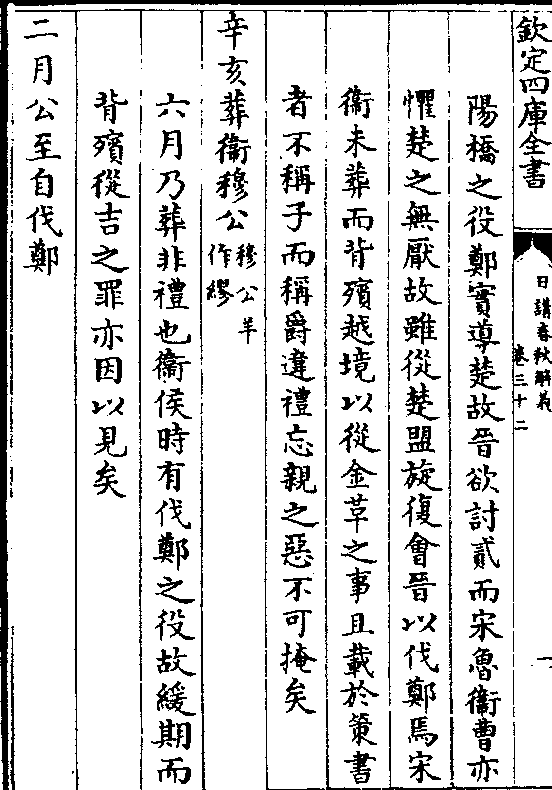 欽定四庫全書
日講春秋解義
卷三十二
一
陽橋之役鄭實導楚故晉欲討貳而宋魯衞曹亦
懼楚之無厭故雖從楚盟旋復會晉以伐鄭焉宋
衞未葬而背殯越境以從金革之事且載於策書
者不稱子而稱爵違禮忘親之惡不可掩矣
辛亥葬衞穆公穆公羊作繆
六月乃葬非禮也衞侯時有伐鄭之役故緩期而
背殯從吉之罪亦因以見矣
二月公至自伐鄭